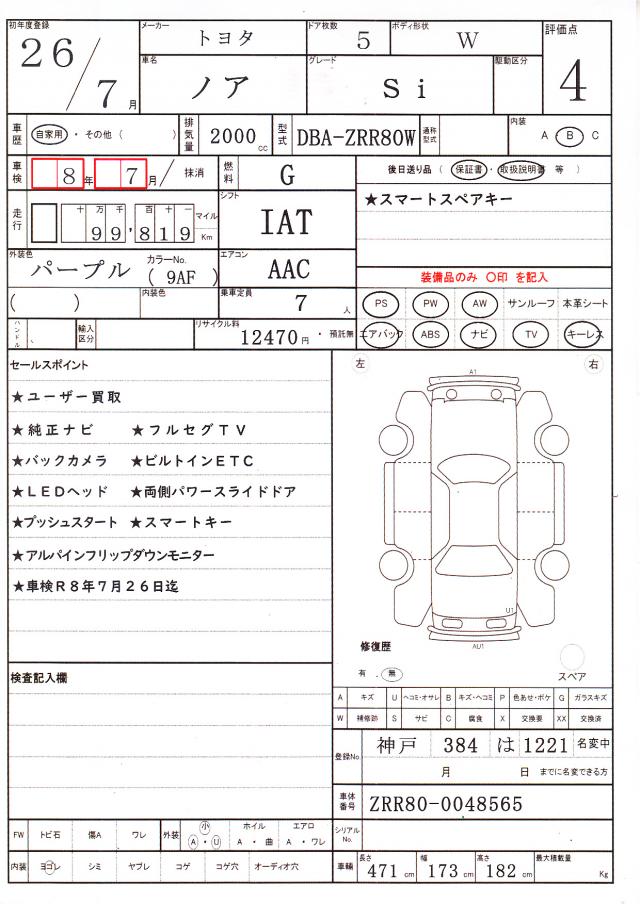 初年度登録 26/7月
メーカー トヨタ
ドア枚数 5
ボディ形状 W
評価点 4
車名 ノア
グレード Si
駆動区分
車歴 自家用・その他( )
排気量 2000cc
型式 DBA-ZRR80W
通称型式
内装 A・B C
車検 8年 7月/ 抹消
燃料 G
後日送り品(保証書・取扱説明書 等)
走行 十 万 千 百 十 一 99,819 マイル Km
シフト IAT
★スマートスペアキー
外装色 パープル カラーNo. (9AF)
エアコン AAC
装備品のみ 〇印 を記入
( )
内装色
乗車定員 7人
PS PW AW サンルーフ 本革シート
ハンドル
輸入区分
リサイクル料 12470円・預託無
エアバック ABS ナビ TV キーレス
セールスポイント
★ユーザー買取
★純正ナビ ★フルセグTV
★バックカメラ ★ビルトインETC
★LEDヘッド ★両側パワースライドドア
★プッシュスタート ★スマートキー
★アルパインフリップダウンモニター
★車検R8年7月26日迄
左 右
A1
U1
AU1
修復歴
有 . 無
スペア
検査記入欄
A キズ U ヘコミ・オサレ B キズ・ヘコミ P 色あせ・ボケ G ガラスキズ
W 補修跡 S サビ C 腐食 X 交換要 XX 交換済
登録No. 神戸 384 は 1221 名変中
月 日 までに名変できる方
車体番号 ZRR80-0048565
シリアルNo.
FW トビ石 傷A ワレ 外装 小 A・U ホイル A・曲 エアロ A・ワレ
内装 ヨゴレ シミ ヤブレ コゲ コゲ穴 オーディオ穴
車輌 長さ 471cm 幅 173cm 高さ 182cm 最大積載量 Kg